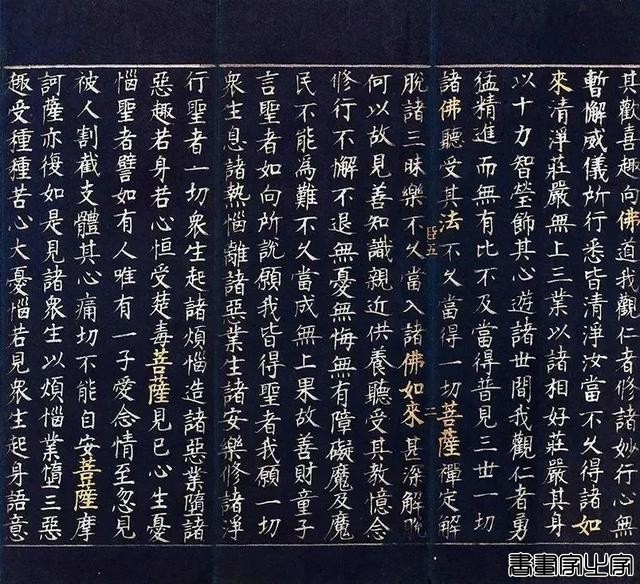 其歡喜趣向佛道我觀仁者修諸妙行心無
暫懈威儀所行悉皆清淨汝當不久得諸如
來清淨莊嚴無上三業以諸相好莊嚴其身
以十力智瑩飾其心遊諸世間我觀仁者勇
猛精進而無有比不及當得普見三世一切
諸佛聽受其法不久當得一切菩薩禪定解
脫諸三昧樂不久當入諸佛如來甚深解脫
何以故見善知識親近供養聽受其教憶念
修行不懈不退無憂無悔無有障礙魔及魔
民不能為難不久當成無上果故善財童子
言聖者如向所說願我皆得聖者我願一切
眾生息諸熱惱離諸惡業生諸安樂修諸淨
行聖者一切眾生起諸煩惱造諸惡業墮諸
惡趣若身若心恒受楚毒菩薩見已心生憂
惱聖者譬如有人唯有一子愛念情至忽見
被人割截支體其心痛切不能自安菩薩摩
訶薩亦復如是見諸眾生以煩惱業墮三惡
趣受種種苦心大憂惱若見眾生起身語意